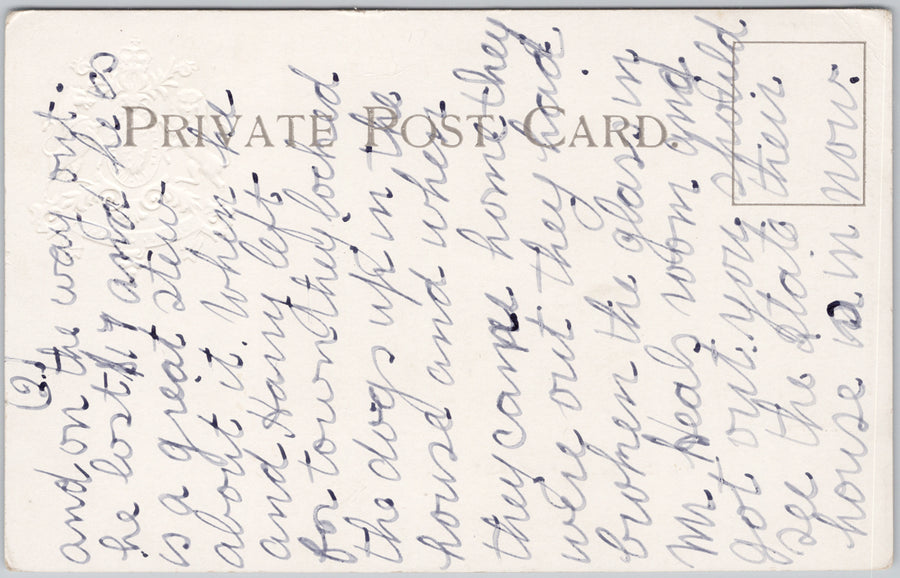 PRIVATE POST CARD.
(2)
and on the way out.
he lost $17 and he is
is a great stew
about it. When he
and Harry left
for town they locked
the dogs up in the
house and when
they came home they
were out they had
broken the glass in
Mr Heals room and
got out. you should
see the state their
house is in now.